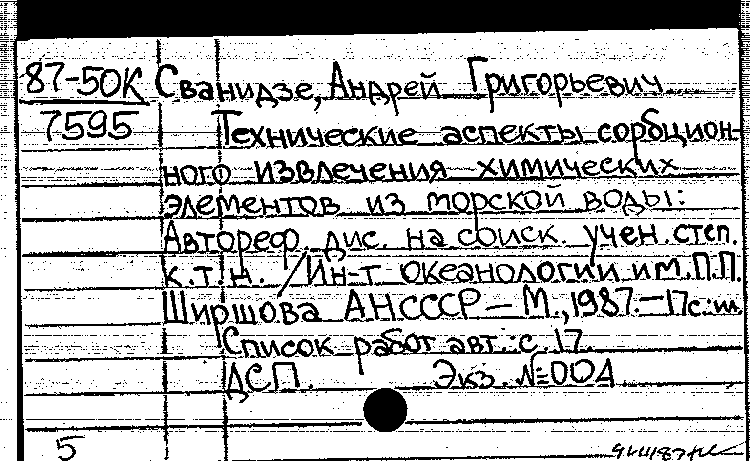 87-50К Сванидзе, Андрей Григорьевич
7595 Технические аспекты сорбцион-
ного извлечения химических
элементов из морской воды:
Автореф. дис. на соиск. учен. степ.
к.т.н. / Ин-т океанологии им. П.П.
Ширшова АН СССР – М., 1987. – 17 с.: ил.
Список работ авт.: с. 17.
ДСП. Экз. №004
5